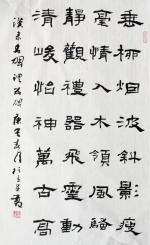 垂柳烟波斜影瘦
毫情入木領風騷
靜觀禮器飛靈動
清峻怡神萬古高